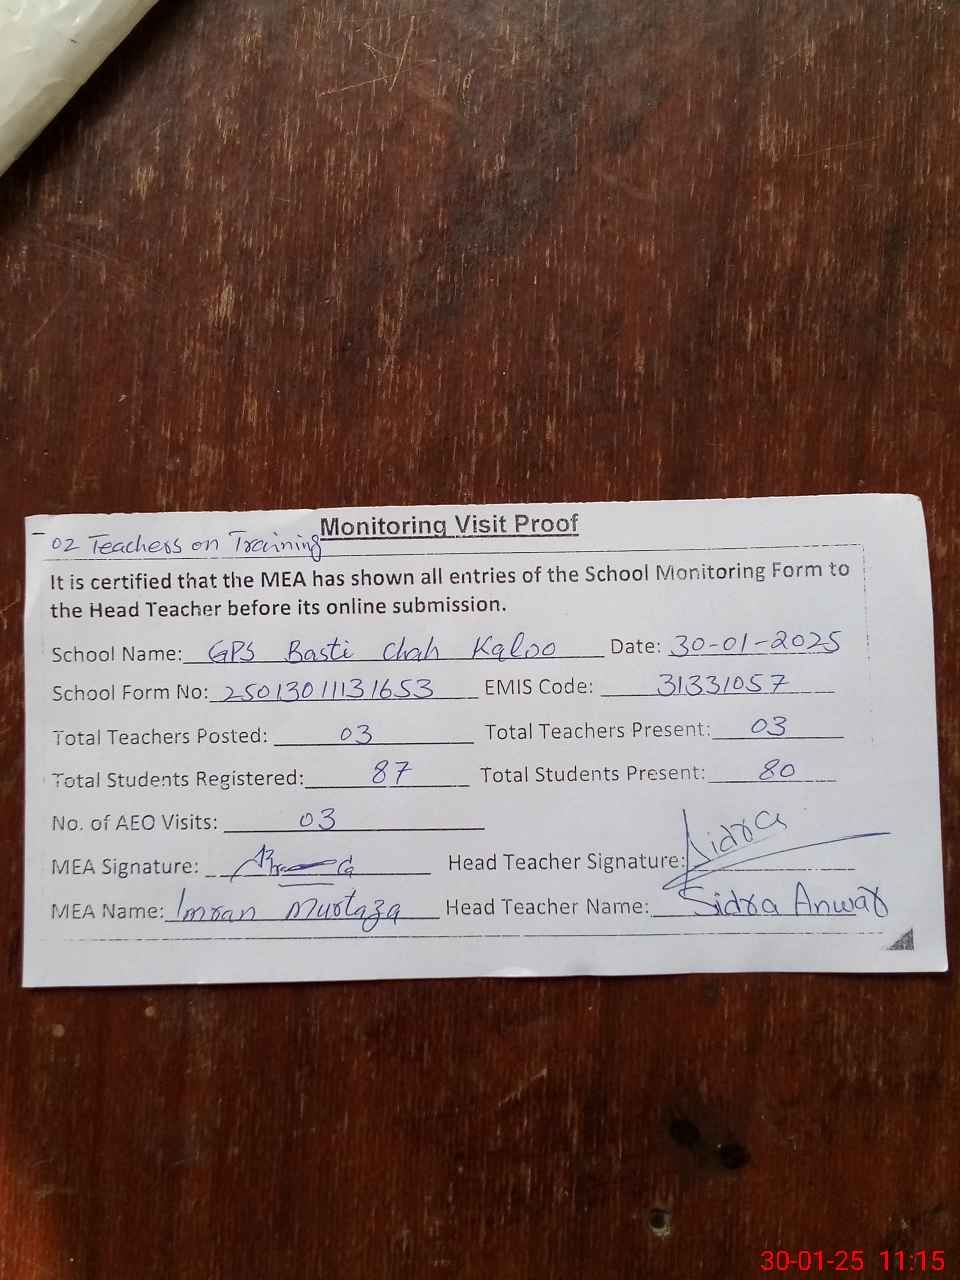 Monitoring Visit Proof
- 02 Teachers on Training
It is certified that the MEA has shown all entries of the School Monitoring Form to
the Head Teacher before its online submission.
School Name: GPS Basti Chah Kaloo Date: 30-01-2025
School Form No: 25013011131653 EMIS Code: 31331057
Total Teachers Posted: 03 Total Teachers Present: 03
Total Students Registered: 87 Total Students Present: 80
No. of AEO Visits: 03
MEA Signature: Head Teacher Signature: Sidra
MEA Name: Imran Murtaza Head Teacher Name: Sidra Anwar
30-01-25 11:15